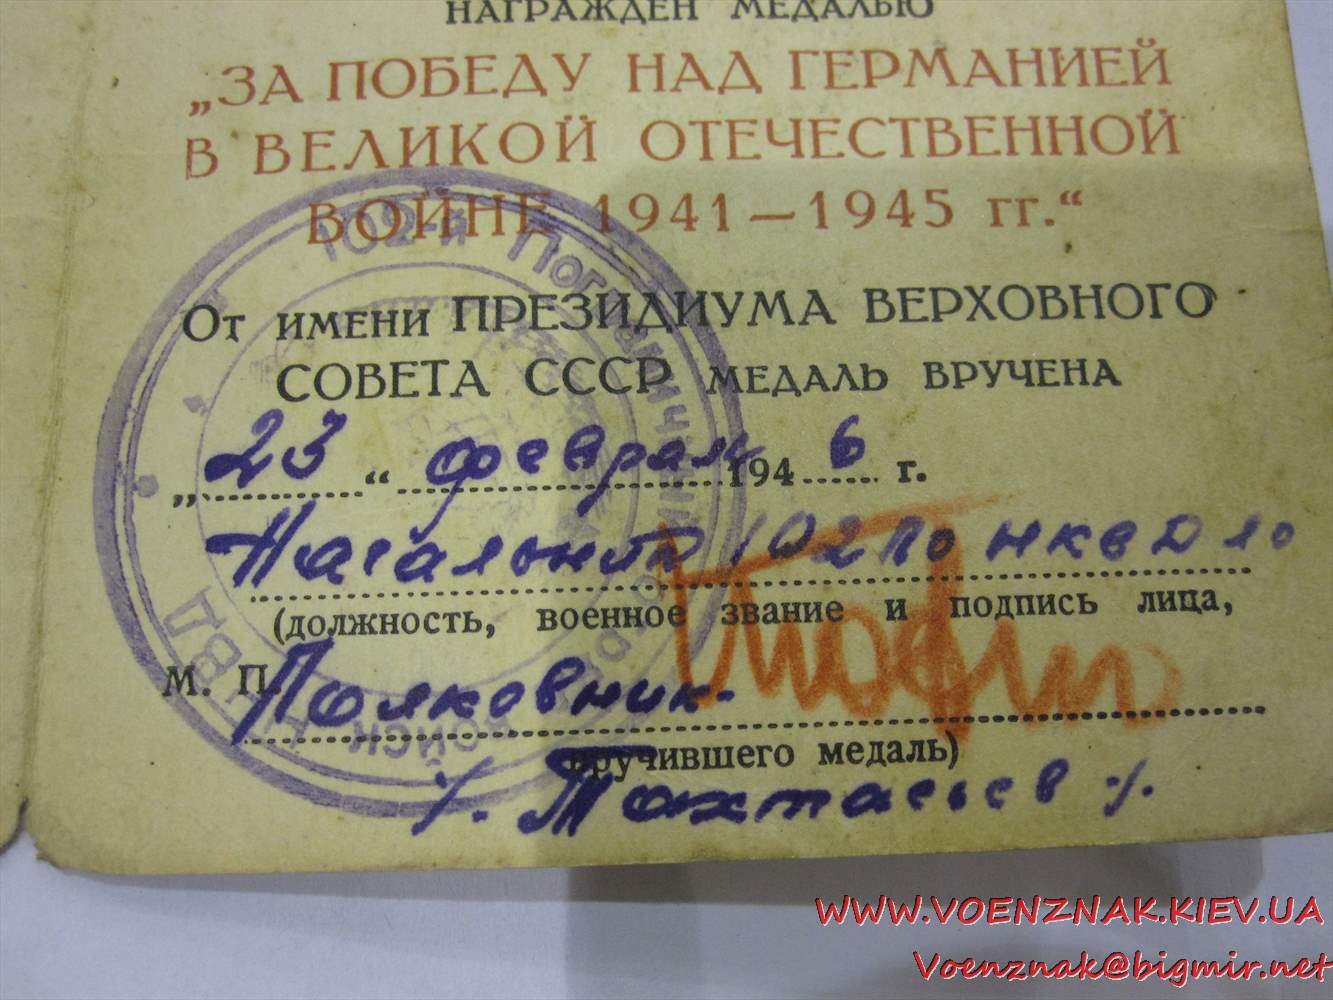 НАГРАЖДЕН МЕДАЛЬЮ
„ЗА ПОБЕДУ НАД ГЕРМАНИЕЙ
В ВЕЛИКОЙ ОТЕЧЕСТВЕННОЙ
ВОЙНЕ 1941—1945 гг.“
От имени ПРЕЗИДИУМА ВЕРХОВНОГО
СОВЕТА СССР МЕДАЛЬ ВРУЧЕНА
„23“ феврал 1946 г.
Начальник 102 по нкв
(должность, военное звание и подпись лица,
М. П. Полковник
вручившего медаль)
/. Тохтасьев /.
102-й Пограничный ВД
WWW.VOENZNAK.KIEV.UA
Voenznak@bigmir.net